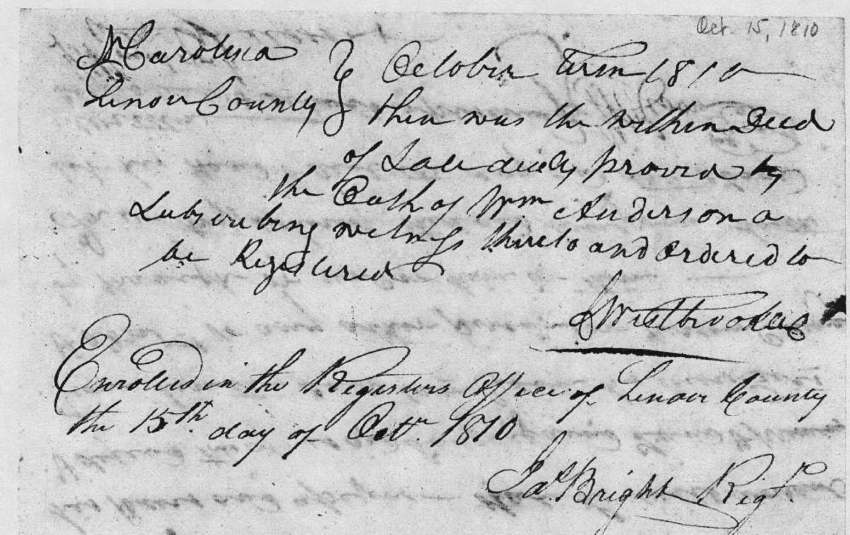 Oct. 15, 1810
N Carolina } October term 1810
Lenoir County } then was the within Deed
of Sale duely proved by
the Oath of Wm Anderson a
Subscribing witness thereto and ordered to
be Registered
Westbrook
Enroled in the Registers Office of Lenoir County
the 15th day of Octr. 1810
Jas. Bright Regtr.